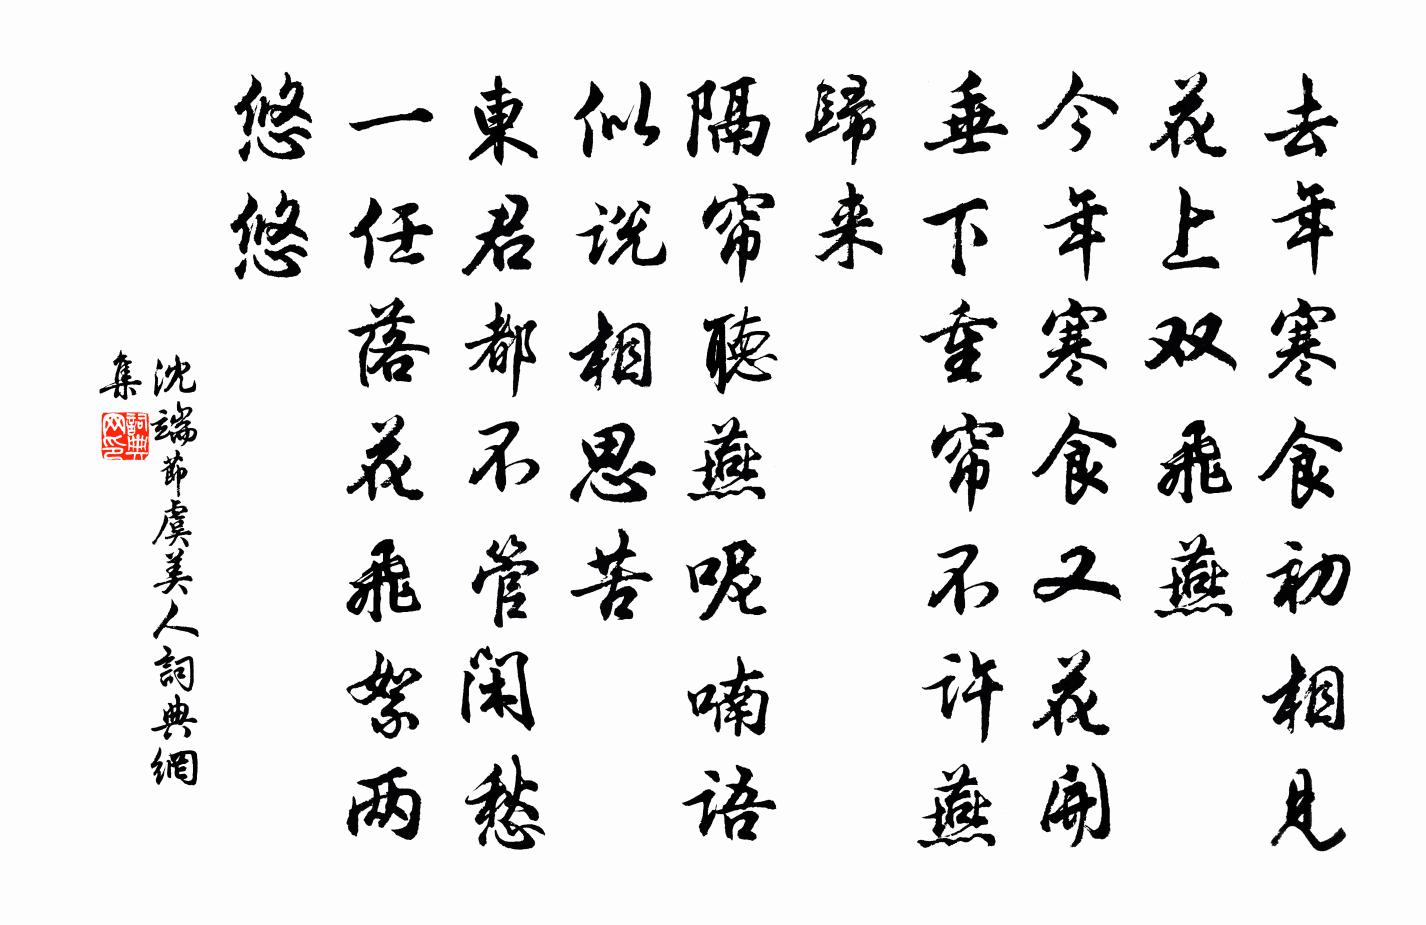 去年寒食初相見
花上双飛燕
今年寒食又花開
垂下重帘不許燕
歸来
隔帘聽燕呢喃語
似说相思苦
東君都不管閑愁
一任落花飛絮两
悠悠
沈端節虞美人詞典網
集
詞典网印